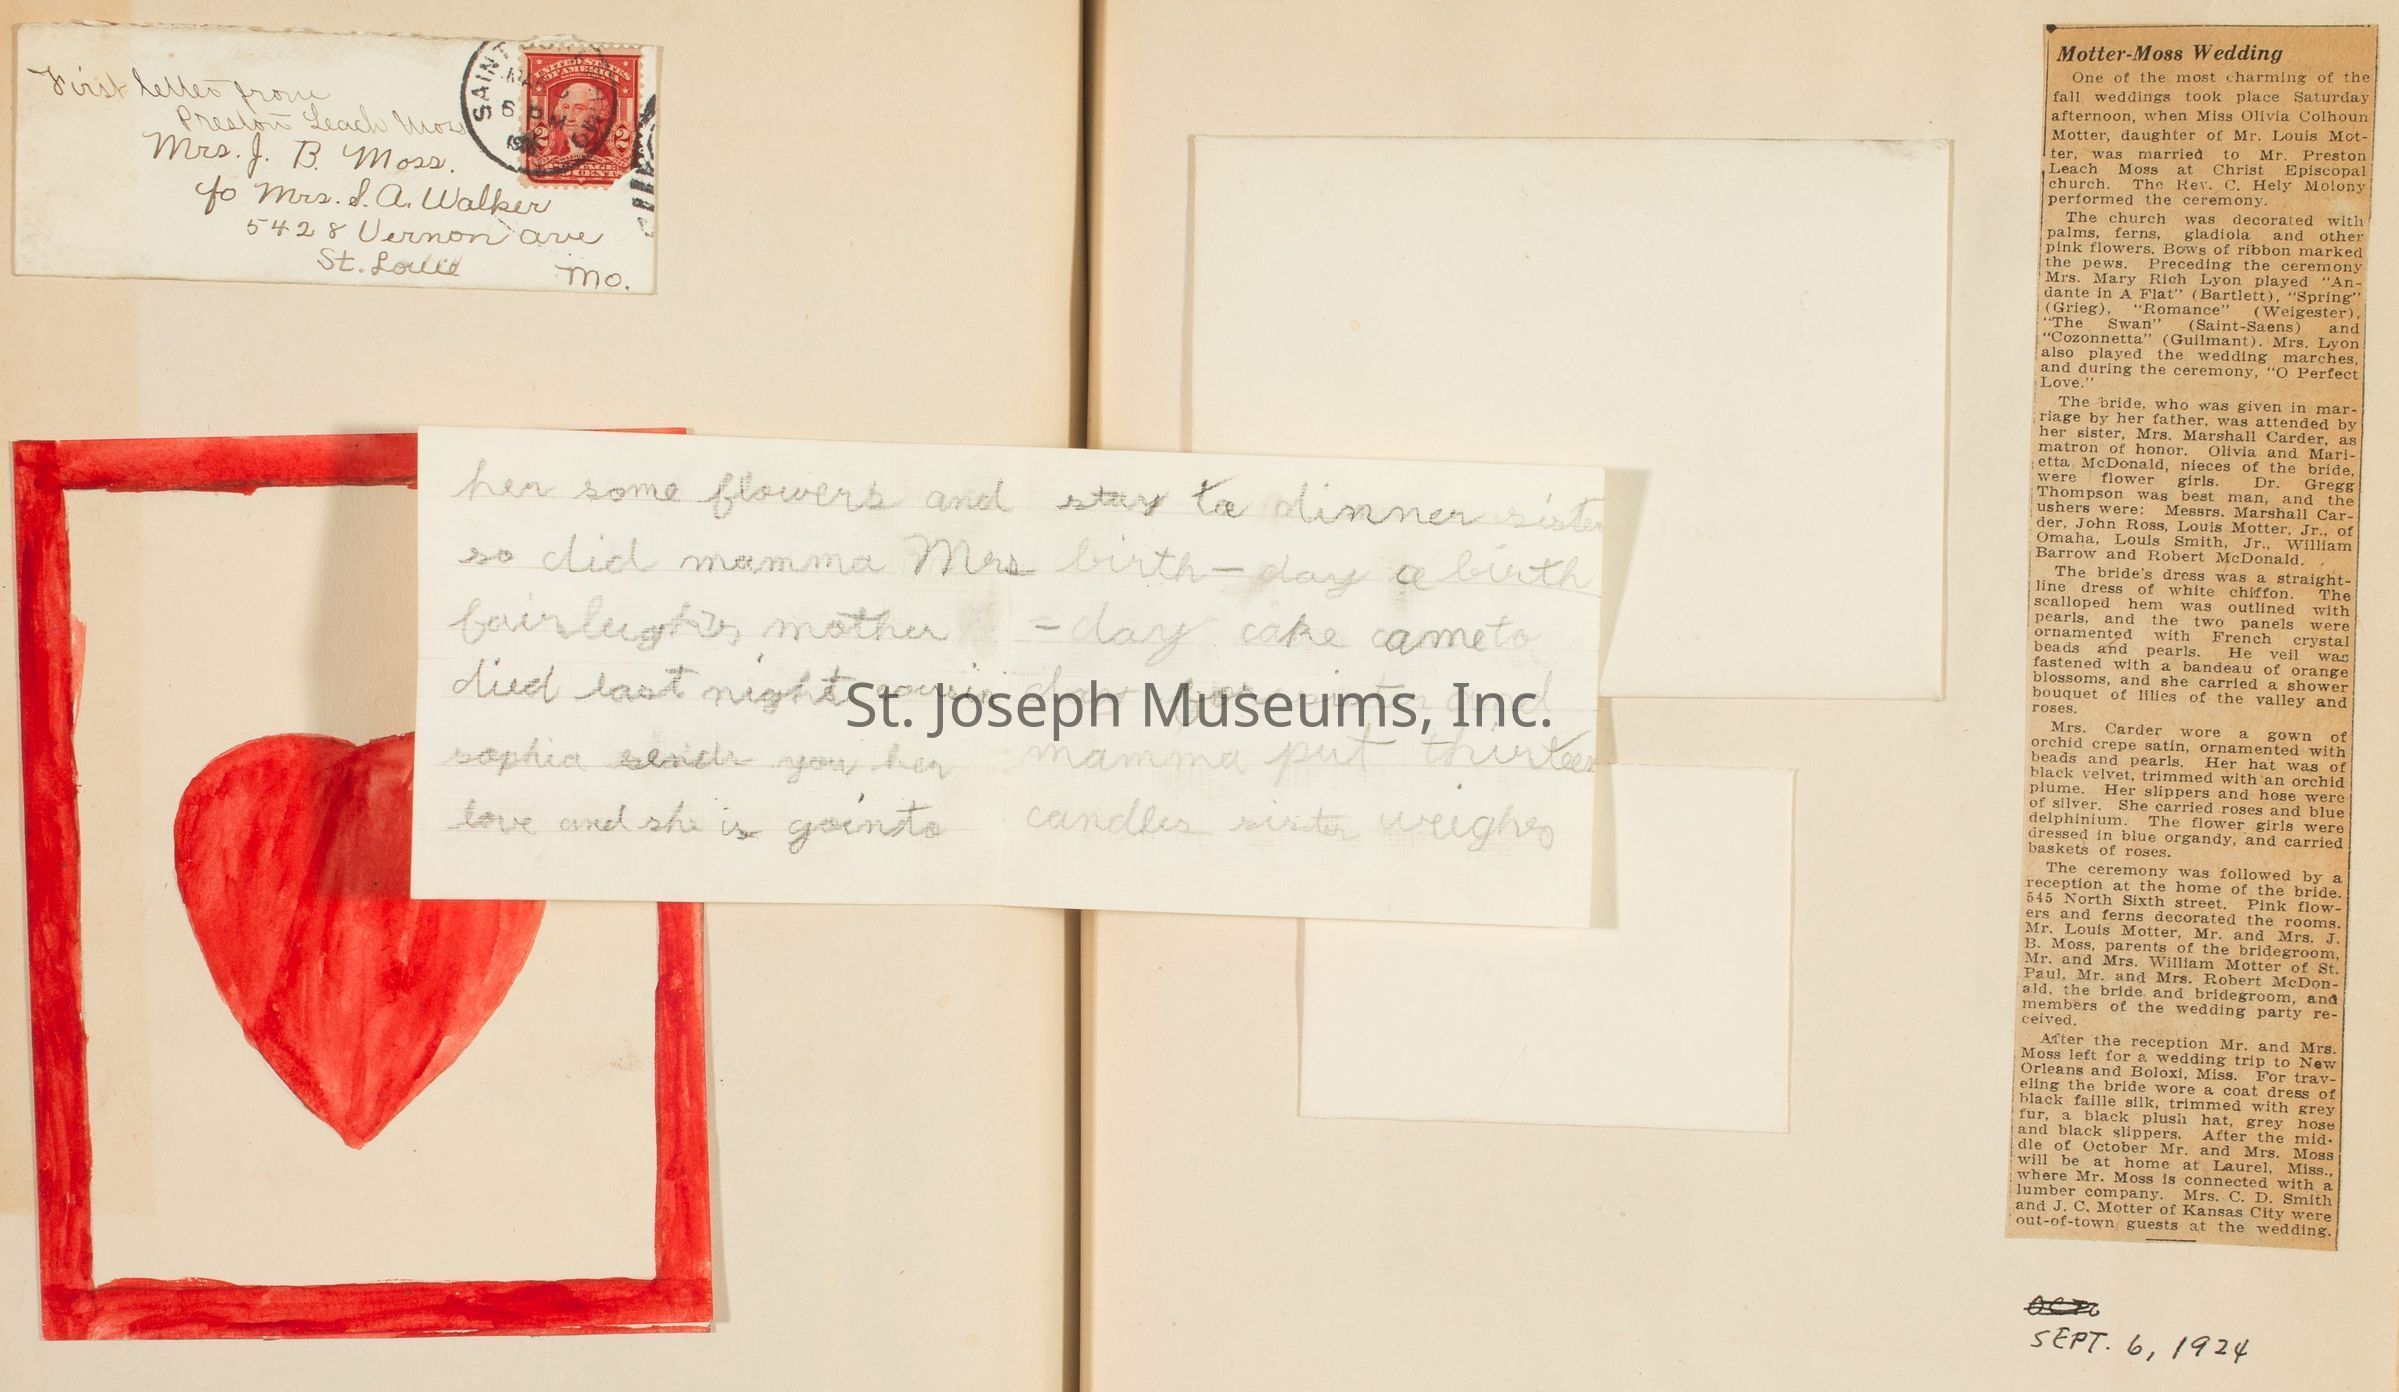 First letter from
Preston Leach Moss
Mrs. J. B. Moss.
c/o Mrs. S. A. Walker
5428 Vernon ave
St. Louis Mo.
SAINT
6
UNITED STATES
OF AMERICA
2 2
her some flowers and
so did mamma Mrs
fairleigh's mother
died last night cousin
sophia sends you her
love and she is goin to
stay to dinner sister
birth-day a birth
-day cake came to
day for sister and
mamma put thirteen
candles sister weighs
St. Joseph Museums, Inc.
Motter-Moss Wedding
One of the most charming of the
fall weddings took place Saturday
afternoon, when Miss Olivia Colhoun
Motter, daughter of Mr. Louis Mot-
ter, was married to Mr. Preston
Leach Moss at Christ Episcopal
church. The Rev. C. Hely Molony
performed the ceremony.
The church was decorated with
palms, ferns, gladiola and other
pink flowers. Bows of ribbon marked
the pews. Preceding the ceremony
Mrs. Mary Rich Lyon played "An-
dante in A Flat" (Bartlett), "Spring"
(Grieg), "Romance" (Weigester),
"The Swan" (Saint-Saens) and
"Cozonnetta" (Guilmant). Mrs. Lyon
also played the wedding marches,
and during the ceremony, "O Perfect
Love."
The bride, who was given in mar-
riage by her father, was attended by
her sister, Mrs. Marshall Carder, as
matron of honor. Olivia and Mari-
etta McDonald, nieces of the bride,
were flower girls. Dr. Gregg
Thompson was best man, and the
ushers were: Messrs. Marshall Car-
der, John Ross, Louis Motter, Jr., of
Omaha, Louis Smith, Jr., William
Barrow and Robert McDonald.
The bride's dress was a straight-
line dress of white chiffon. The
scalloped hem was outlined with
pearls, and the two panels were
ornamented with French crystal
beads and pearls. He veil was
fastened with a bandeau of orange
blossoms, and she carried a shower
bouquet of lilies of the valley and
roses.
Mrs. Carder wore a gown of
orchid crepe satin, ornamented with
beads and pearls. Her hat was of
black velvet, trimmed with an orchid
plume. Her slippers and hose were
of silver. She carried roses and blue
delphinium. The flower girls were
dressed in blue organdy, and carried
baskets of roses.
The ceremony was followed by a
reception at the home of the bride.
545 North Sixth street. Pink flow-
ers and ferns decorated the rooms.
Mr. Louis Motter, Mr. and Mrs. J.
B. Moss, parents of the bridegroom,
Mr. and Mrs. William Motter of St.
Paul, Mr. and Mrs. Robert McDon-
ald, the bride and bridegroom, and
members of the wedding party re-
ceived.
After the reception Mr. and Mrs.
Moss left for a wedding trip to New
Orleans and Boloxi, Miss. For trav-
eling the bride wore a coat dress of
black faille silk, trimmed with grey
fur, a black plush hat, grey hose
and black slippers. After the mid-
dle of October Mr. and Mrs. Moss
will be at home at Laurel, Miss.,
where Mr. Moss is connected with a
lumber company. Mrs. C. D. Smith
and J. C. Motter of Kansas City were
out-of-town guests at the wedding.
SEPT. 6, 1924